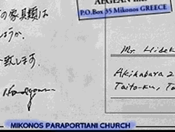 の家具類は
ょうか.
致します.
AEGEAN
P.O.Box 35 Mikonos GREECE
Mr Hideki
Akihabara 2
Taito-ku, T
MIKONOS PARAPORTIANI CHURCH